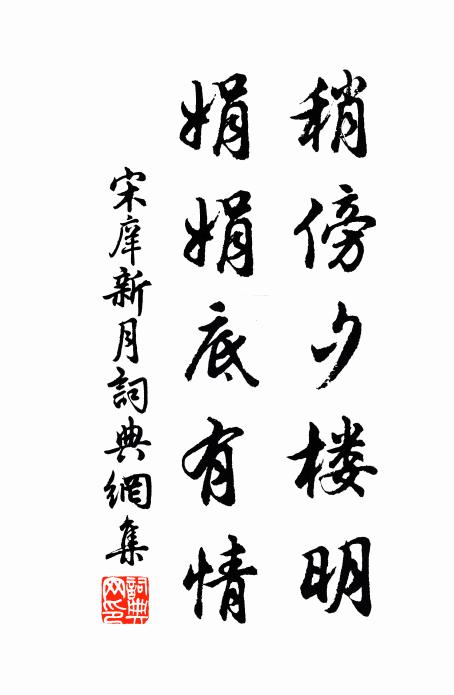 稍傍夕楼明
娟娟底有情
宋庠新月詞典網集
詞典网印